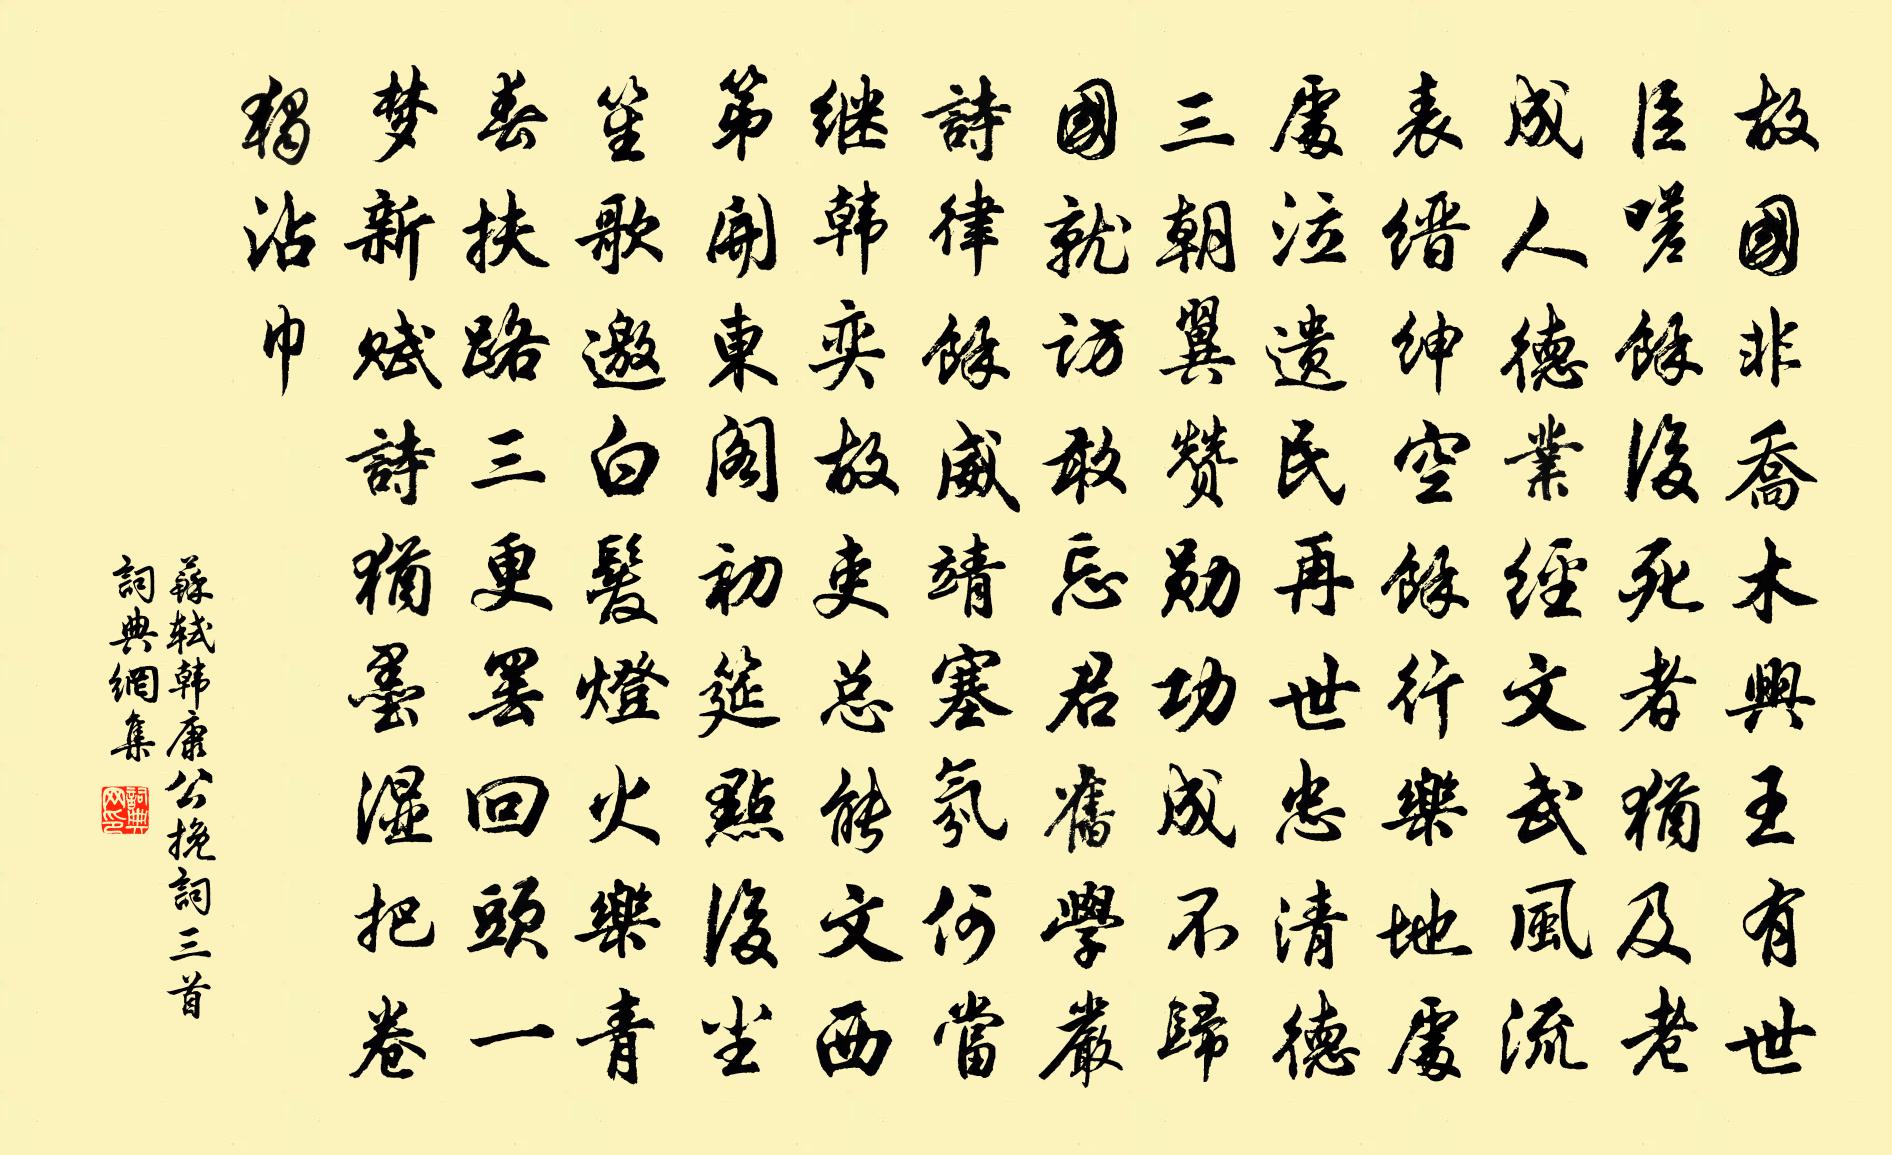 故國非喬木興王有世
臣嗟餘後死者猶及老
成人德業經文武風流
表缙绅空餘行樂地處
處泣遺民再世忠清德
三朝翼赞勋功成不歸
國就訪敢忘君舊學嚴
詩律餘威靖塞氛何當
继韩奕故吏总能文西
第開東阁初筵點後尘
笙歌邀白髮燈火樂青
春扶路三更罢回頭一
梦新赋詩猶墨濕把卷
獨沾巾
蘇轼韩康公挽詞三首
詞典網集
詞典网印